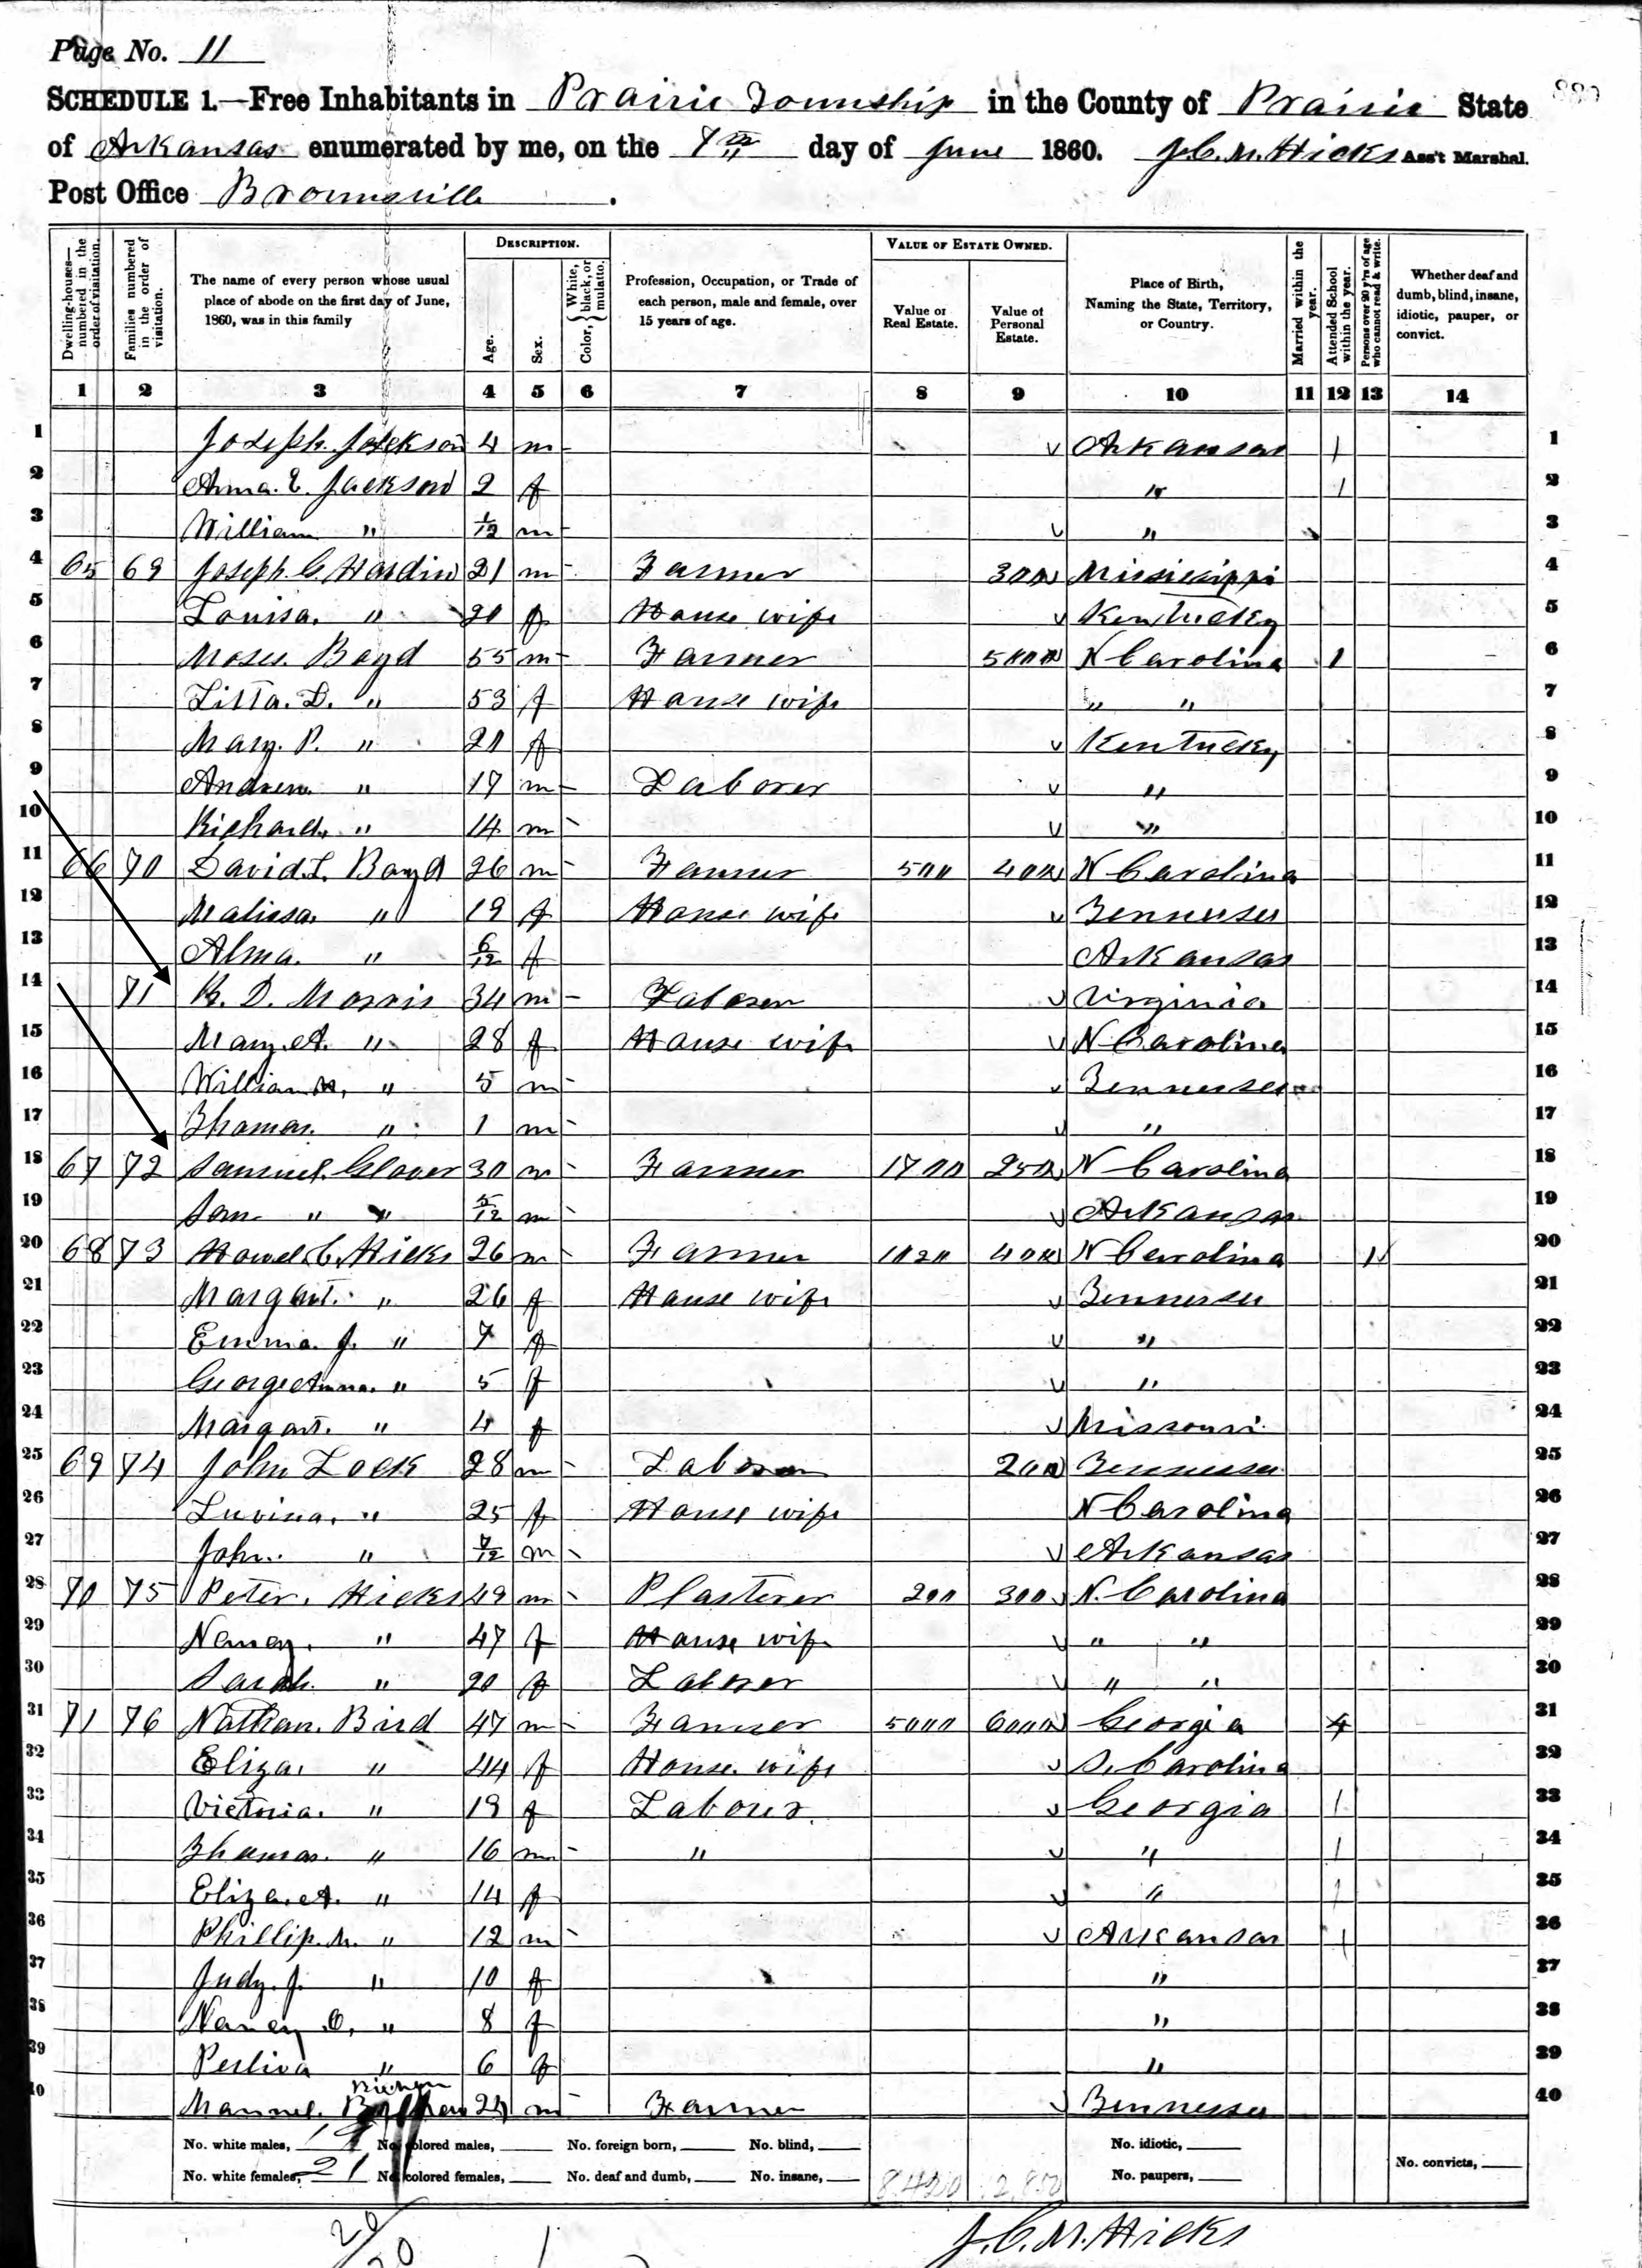 Page No. 11
SCHEDULE 1.—Free Inhabitants in Prairie Township in the County of Prairie State
of Arkansas enumerated by me, on the 7th day of June 1860. J.C.M. Hicks Ass't Marshal.
Post Office Brownsville.
Dwelling-houses—numbered in the order of visitation.
Families numbered in the order of visitation.
The name of every person whose usual place of abode on the first day of June, 1860, was in this family
DESCRIPTION.
Age.
Sex.
Color, {White, black, or mulatto.
Profession, Occupation, or Trade of each person, male and female, over 15 years of age.
VALUE OF ESTATE OWNED.
Value of Real Estate.
Value of Personal Estate.
Place of Birth, Naming the State, Territory, or Country.
Married within the year.
Attended School within the year.
Persons over 20 y'rs of age who cannot read & write.
Whether deaf and dumb, blind, insane, idiotic, pauper, or convict.
1 2 3 4 5 6 7 8 9 10 11 12 13 14
1 Joseph Jackson 4 m Arkansas / 1
2 Anna. E. Jackson 2 f " / 2
3 William " 1/12 m " 3
4 65 69 Joseph C. Hardin 21 m Farmer 300 Missisippi 4
5 Louisa. " 20 f House wife Kentucky 5
6 Moses. Boyd 55 m Farmer 5000 N Carolina 1 6
7 Litta. D. " 53 f House wife " " 7
8 Mary. P. " 21 f Kentucky 8
9 Andrew " 17 m Laborer " 9
10 Richard. " 14 m " 10
11 66 70 David. L. Boyd 26 m Farmer 500 400 N Carolina 11
12 Malissa. " 19 f House wife Tennessee 12
13 Alma. " 6/12 f Arkansas 13
14 71 R. D. Morris 34 m Laborer Virginia 14
15 Mary. A. " 28 f House wife N Carolina 15
16 William " 5 m Tennessee 16
17 Thomas. " 1 m " 17
18 67 72 Samuel. Glover 30 m Farmer 1700 250 N Carolina 18
19 Sam " " 5/12 m Arkansas 19
20 68 73 Howel. C. Hicks 26 m Farmer 1020 400 N Carolina 1 20
21 Margart. " 26 f House wife Tennessee 21
22 Emma. J. " 7 f " 22
23 George Anna. " 5 f " 23
24 Margart. " 4 f Missouri 24
25 69 74 John Lock 28 m Laborer 200 Tennessee 25
26 Luvina. " 25 f House wife N Carolina 26
27 John. " 7/12 m Arkansas 27
28 70 75 Peter. Hicks 49 m Plasterer 200 300 N. Carolina 28
29 Nancy. " 47 f House wife " " 29
30 Sarah. " 20 f Laborer " " 30
31 71 76 Nathan. Bird 47 m Farmer 5000 6000 Georgia 31
32 Eliza. " 44 f House. wife S. Carolina 32
33 Victoria. " 19 f Laborer. Georgia / 33
34 Thomas. " 16 m " " / 34
35 Eliza. A. " 14 f " / 35
36 Phillip. M. " 12 m Arkansas / 36
37 Judy. J. " 10 f " 37
38 Nancy. O. " 8 f " 38
39 Perlina " 6 f " 39
40 Manuel. m Farmer Tennessee 40
No. white males, 19 No. colored males, No. foreign born, No. blind, No. idiotic,
No. white females, 21 No. colored females, No. deaf and dumb, No. insane, 8420 12,850 No. paupers, No. convicts,
J. C. M. Hicks
20